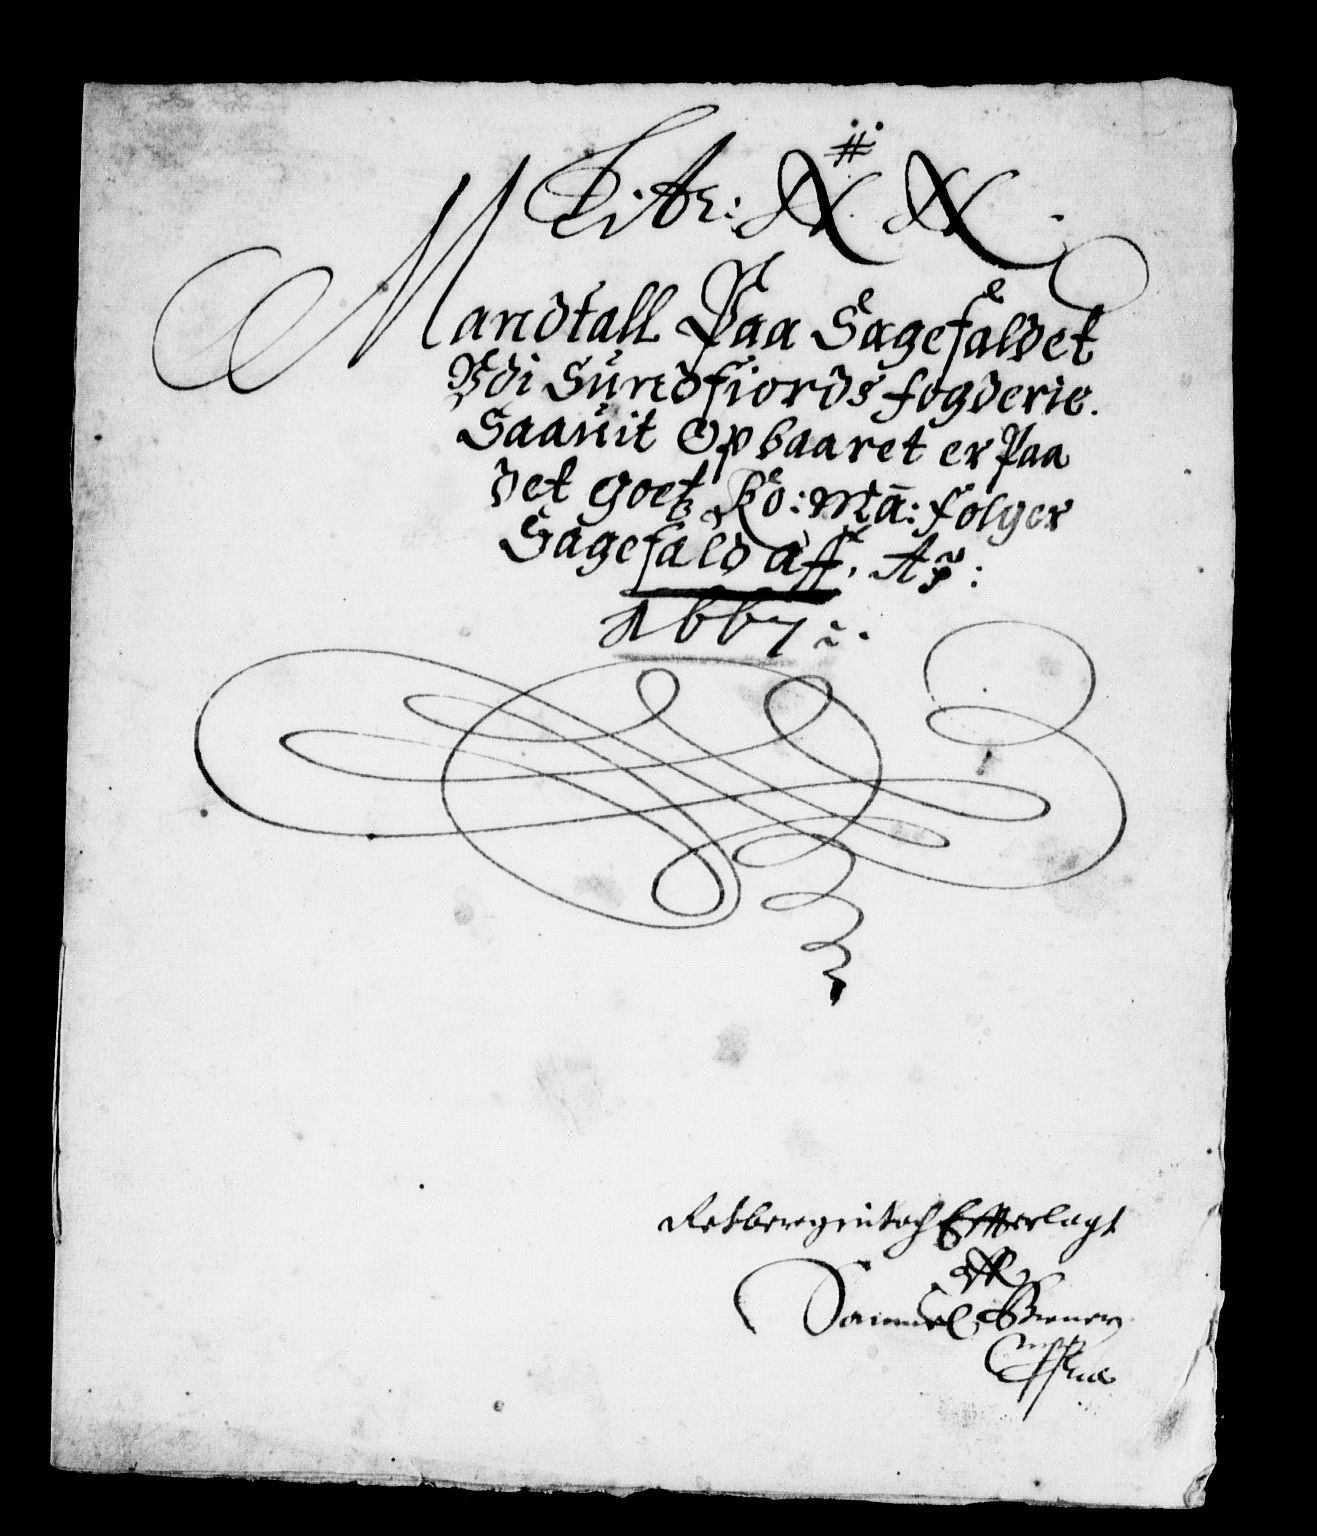 Litr: X X
Mandtall Paa Sagefaldet
Vdi Sundfiords fogderie.
Saauit Opbaaret er Paa
det goetz Ko: Ma: følger
Sagefald aff, A͠o:
1667
Efterlagt
aff
Samuel